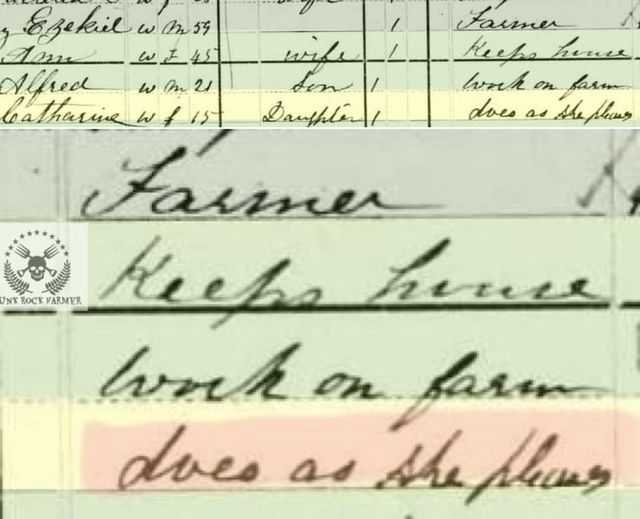 Ezekiel w m 59 1 Farmer
Ann w F 45 wife 1 Keeps house
Alfred w m 21 Son 1 work on farm
Catharine w f 15 Daughter 1 does as she pleases
Farmer
Keeps house
work on farm
does as she pleases
UNK ROCK FARMER